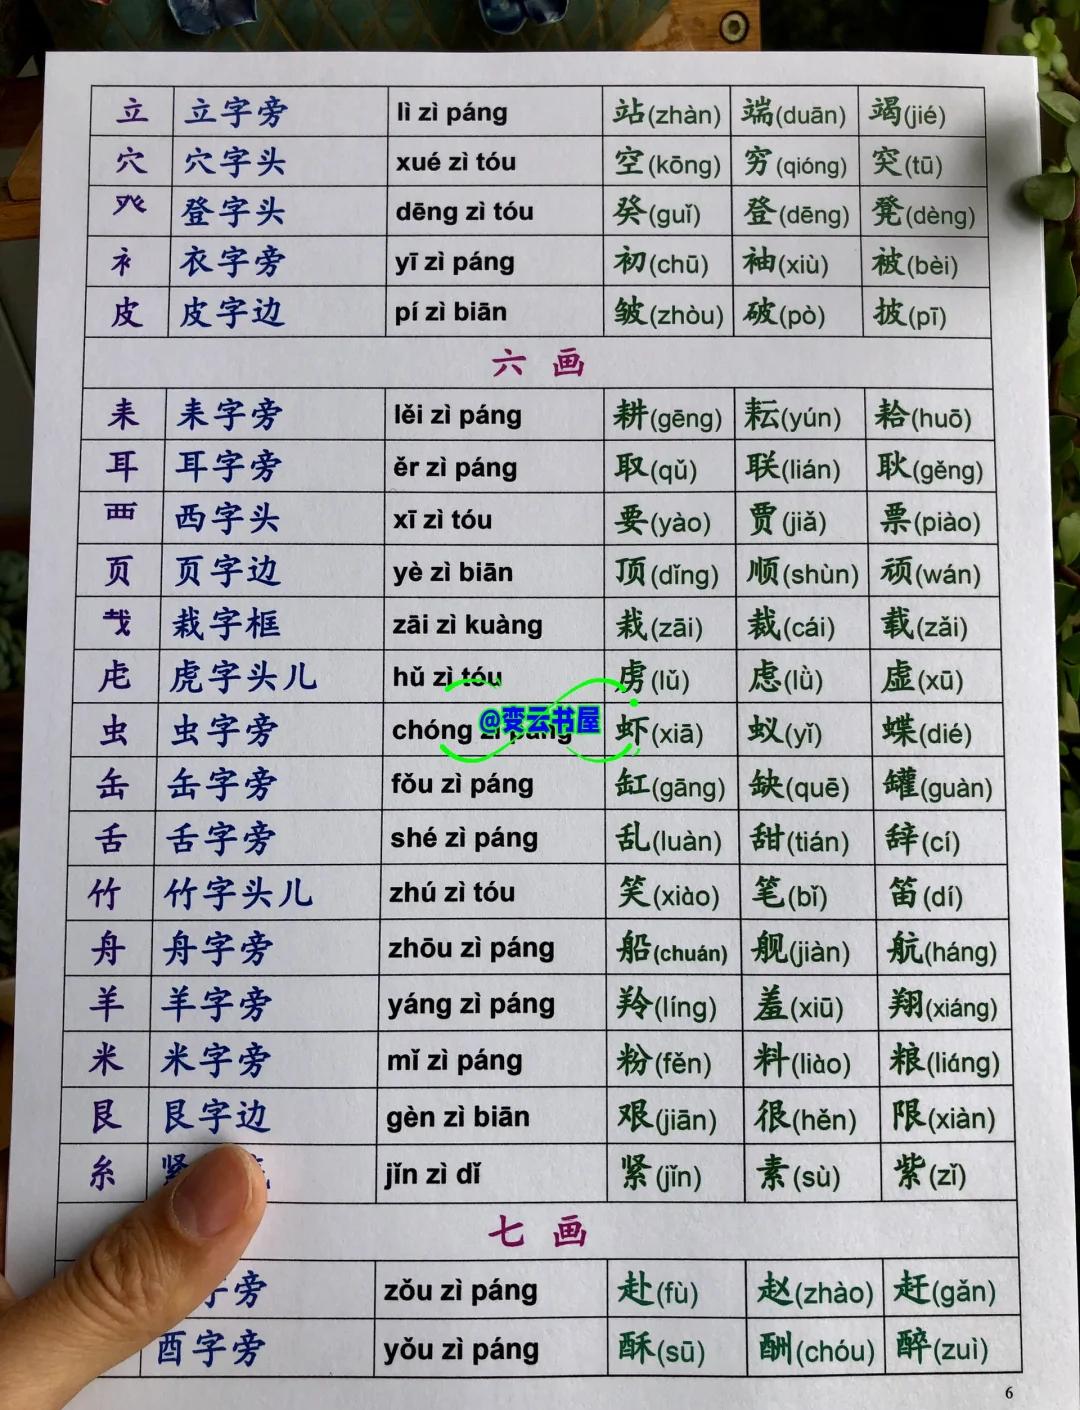 立 立字旁 lì zì páng 站(zhàn) 端(duān) 竭(jié)
穴 穴字头 xué zì tóu 空(kōng) 穷(qióng) 突(tū)
癶 登字头 dēng zì tóu 癸(guǐ) 登(dēng) 凳(dèng)
衤 衣字旁 yī zì páng 初(chū) 袖(xiù) 被(bèi)
皮 皮字边 pí zì biān 皱(zhòu) 破(pò) 披(pī)
六 画
耒 耒字旁 lěi zì páng 耕(gēng) 耘(yún) 耠(huō)
耳 耳字旁 ěr zì páng 取(qǔ) 联(lián) 耿(gěng)
覀 西字头 xī zì tóu 要(yào) 贾(jiǎ) 票(piào)
页 页字边 yè zì biān 顶(dǐng) 顺(shùn) 顽(wán)
栽字框 zāi zì kuàng 栽(zāi) 裁(cái) 载(zǎi)
虍 虎字头儿 hǔ zì tóu 虏(lǔ) 虑(lǜ) 虚(xū)
虫 虫字旁 chóng zì páng 虾(xiā) 蚁(yǐ) 蝶(dié)
@变云书屋
缶 缶字旁 fǒu zì páng 缸(gāng) 缺(quē) 罐(guàn)
舌 舌字旁 shé zì páng 乱(luàn) 甜(tián) 辞(cí)
竹 竹字头儿 zhú zì tóu 笑(xiào) 笔(bǐ) 笛(dí)
舟 舟字旁 zhōu zì páng 船(chuán) 舰(jiàn) 航(háng)
羊 羊字旁 yáng zì páng 羚(líng) 羞(xiū) 翔(xiáng)
米 米字旁 mǐ zì páng 粉(fěn) 料(liào) 粮(liáng)
艮 艮字边 gèn zì biān 艰(jiān) 很(hěn) 限(xiàn)
糸 jǐn zì dǐ 紧(jǐn) 素(sù) 紫(zǐ)
七 画
字旁 zǒu zì páng 赴(fù) 赵(zhào) 赶(gǎn)
酉字旁 yǒu zì páng 酥(sū) 酬(chóu) 醉(zuì)
6